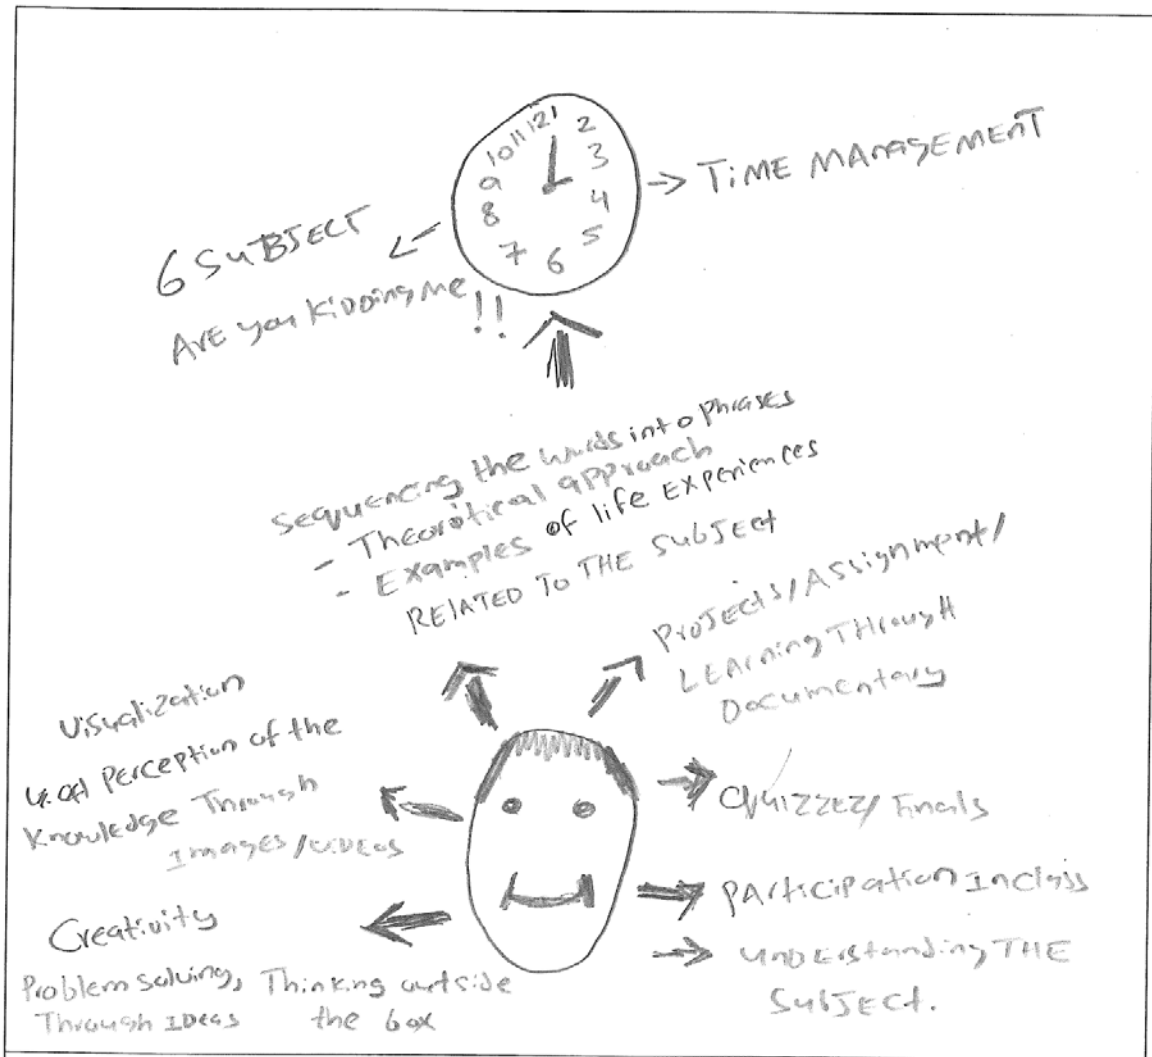 12 1 2 3 4 5 6 7 8 9 10 11
TiME MANAgEMEnT
6 SuBJECT
ArE you KiDDing ME !!
Sequencing the words into phrases
- Theoritical approach
- Examples of life Experiences
RELATED TO THE SubJEct
ProJEcts/Assignment/
LEArning THrough
Documentary
Visualization
Perception of the
Knowledge Through
Images/ViDEos
Quizzez/Finals
PArticipation In class
unDErstanding THE
SubJEct.
Creativity
Problem Solving, Thinking outside
Through IDEas the box